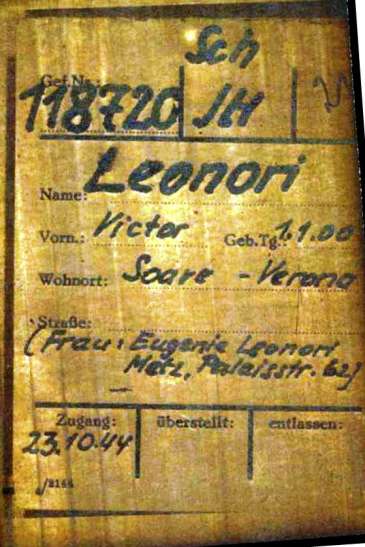 Sch
Gef.Nr.: 118720 JH
Name: Leonori
Vorn.: Victor Geb.Tg.: 1.1.00
Wohnort: Soave - Verona
Straße:
(Frau: Eugenie Leonori
Metz, Palaisstr. 62)
Zugang: überstellt: entlassen:
23.10.44